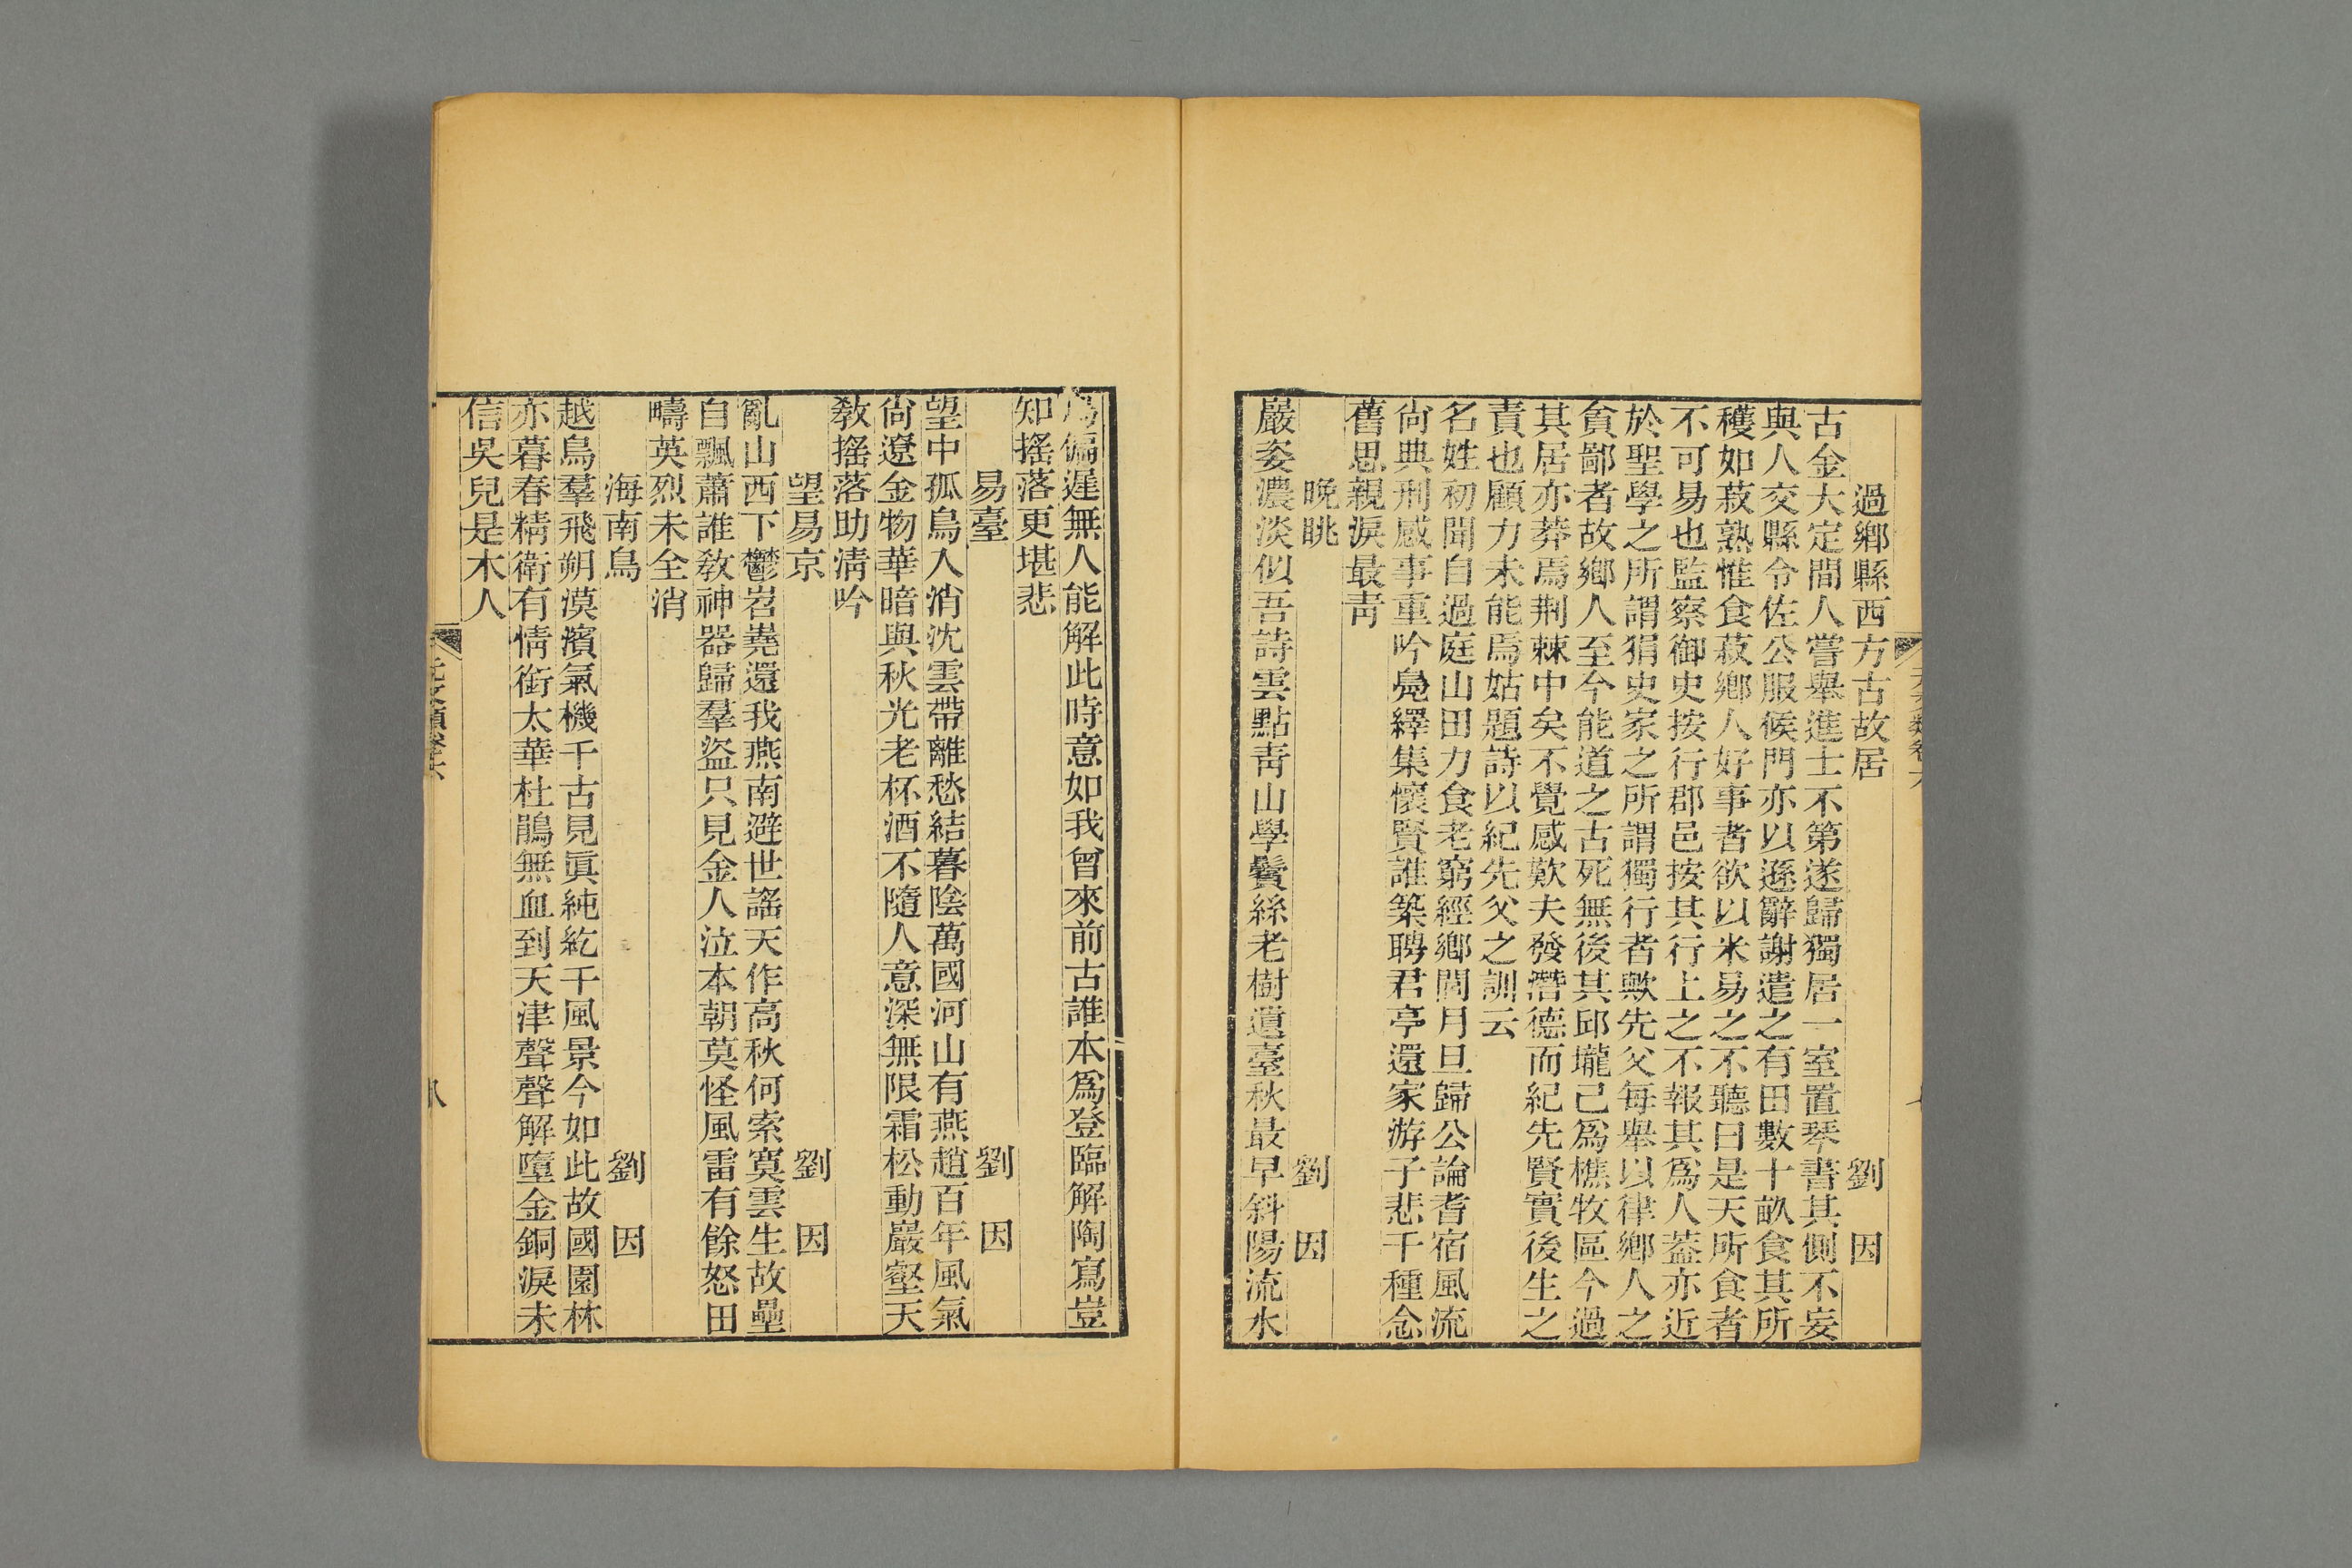 過鄉縣西方古故居　劉　因
古金大定間人嘗舉進士不第遂歸獨居一室置琴書其側不妄
與人交縣令佐公服候門亦以遜辭謝遣之有田數十畝食其所
穫如菽熟惟食菽鄉人好事者欲以米易之不聽曰是天所食者
不可易也監察御史按行郡邑按其行上之不報其爲人葢亦近
於聖學之所謂狷史家之所謂獨行者歟先父每舉以律鄉人之
貪鄙者故鄉人至今能道之古死無後其邱壠己爲樵牧區今過
其居亦莽焉荆棘中矣不覺感歎夫發潛德而紀先賢實後生之
責也顧力未能焉姑題詩以紀先父之訓云
名姓初聞自過庭山田力食老窮經鄉閭月旦歸公論耆宿風流
尙典刑感事重吟鳧繹集懷賢誰築聘君亭還家游子悲千種念
舊思親淚最靑
晚眺　劉　因
巖姿濃淡似吾詩雲點靑山學鬢絲老樹遺臺秋最早斜陽流水
偏遲無人能解此時意如我曾來前古誰本爲登臨解陶寫豈
知搖落更堪悲
易臺　劉　因
望中孤鳥入消沈雲帶離愁結暮陰萬國河山有燕趙百年風氣
尙遼金物華暗與秋光老杯酒不隨人意深無限霜松動巖壑天
敎搖落助淸吟
望易京　劉　因
亂山西下鬱岧嶤還我燕南避世謠天作高秋何索寞雲生故壘
自飄蕭誰敎神器歸羣盜只見金人泣本朝莫怪風雷有餘怒田
疇英烈未全消
海南鳥　劉　因
越鳥羣飛朔漠濱氣機千古見眞純紇干風景今如此故國園林
亦暮春精衛有情銜太華杜鵑無血到天津聲聲解墮金銅淚未
信吳兒是木人